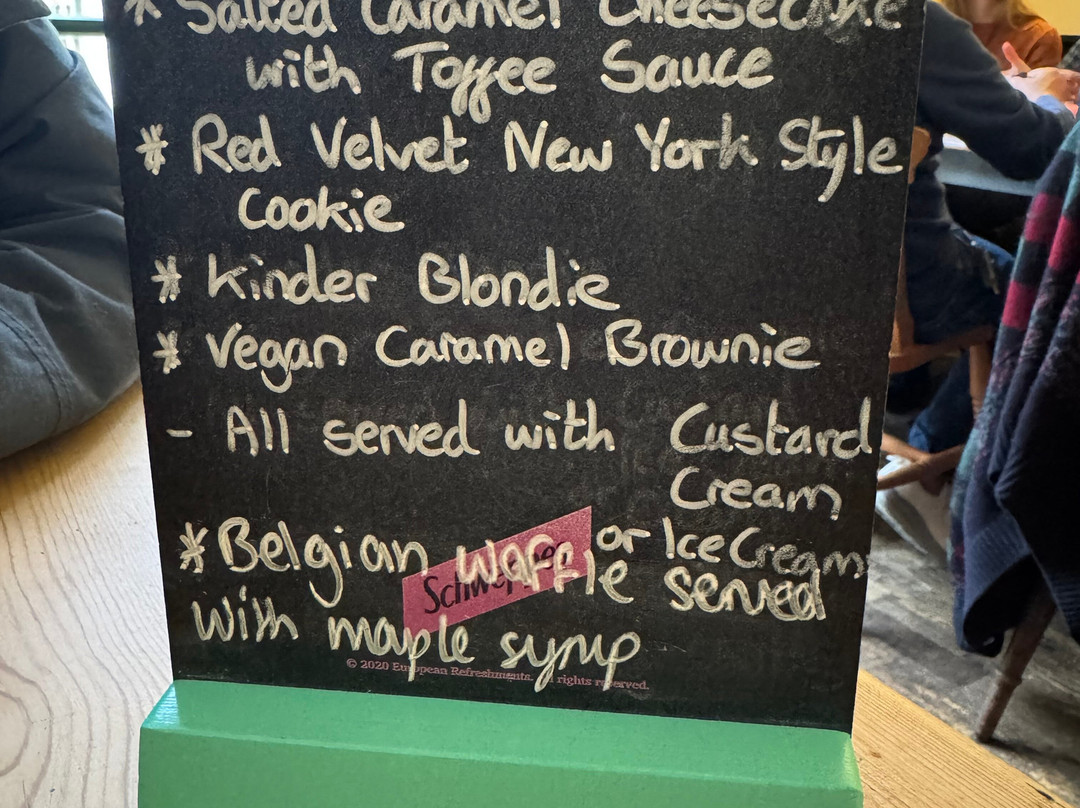 * Salted Caramel Cheesecake
with Toffee Sauce
* Red Velvet New York Style
Cookie
* Kinder Blondie
* Vegan Caramel Brownie
- All served with Custard
Cream
or Ice Cream
* Belgian Waffle served
with maple syrup
Schweppes
© 2020 European Refreshments. All rights reserved.